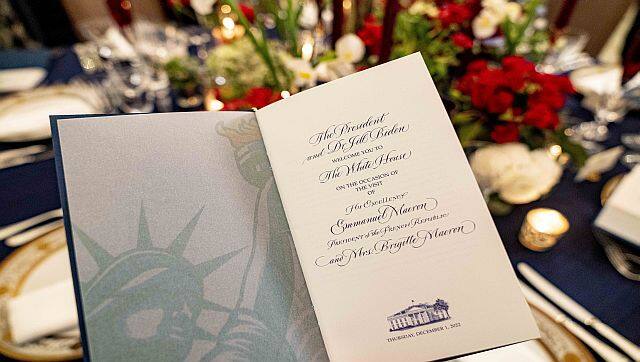 The President
and Dr. Jill Biden
WELCOME YOU TO
The White House
ON THE OCCASION OF
THE VISIT
OF
His Excellency
Emmanuel Macron
PRESIDENT of the FRENCH REPUBLIC
and Mrs. Brigitte Macron
THURSDAY, DECEMBER 1, 2022